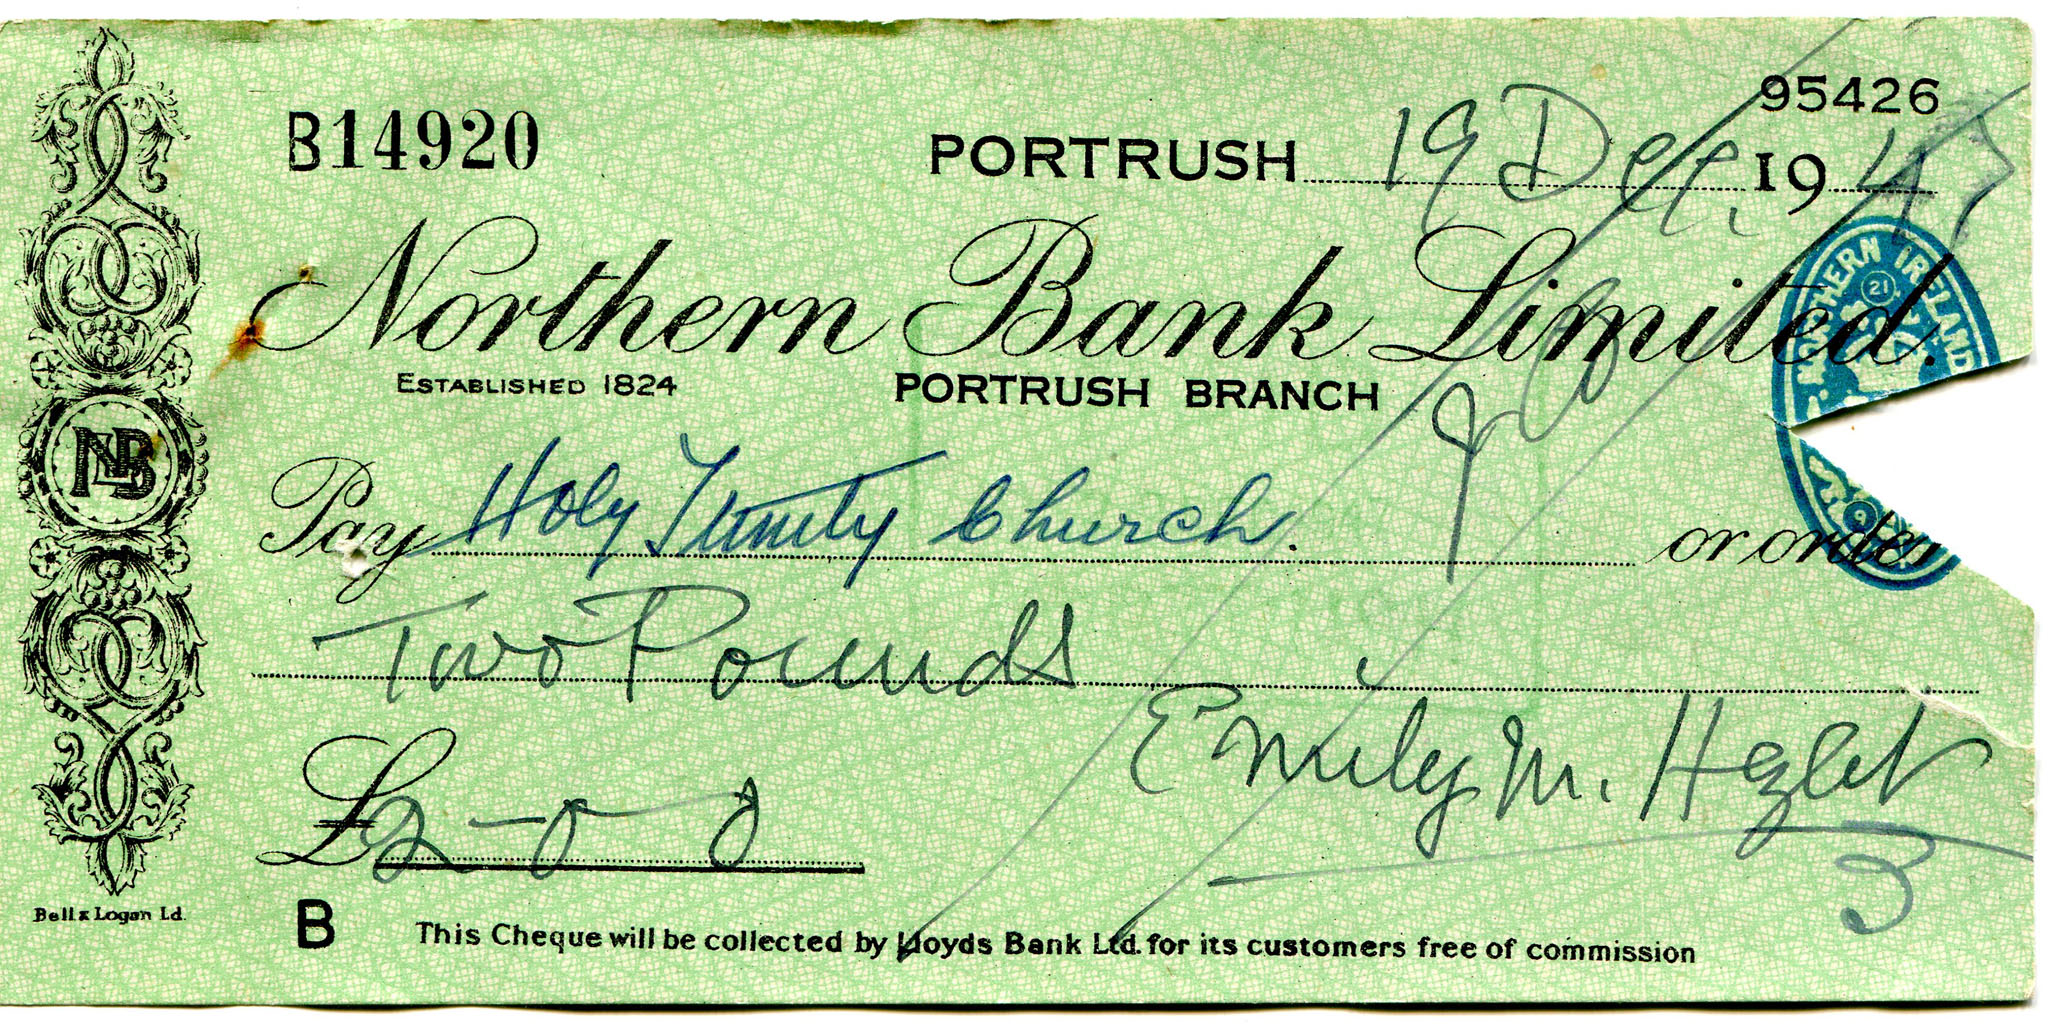 95426
B14920 PORTRUSH 19 Dec. 1947
Northern Bank Limited.
NORTHERN IRELAND
21
ESTABLISHED 1824 PORTRUSH BRANCH
Pay Holy Trinity Church. or order
Two Pounds
Emily M. Hezlet
£2-0-0
3
NBL
Bell & Logan Ld.
B This Cheque will be collected by Lloyds Bank Ltd. for its customers free of commission